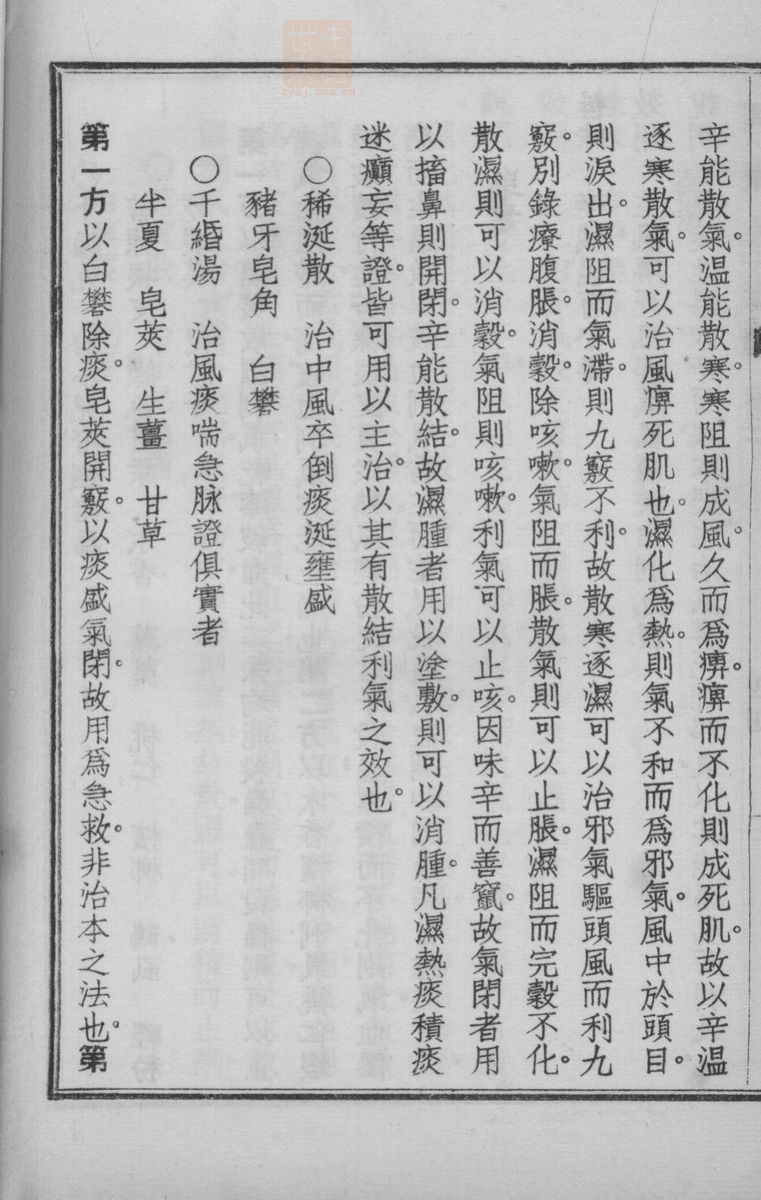 辛能散氣。温能散寒。寒阻則成風。久而爲痹。痹而不化則成死肌。故以辛温
逐寒散氣。可以治風痹死肌也。濕化爲熱。則氣不和而爲邪氣。風中於頭目。
則淚出。濕阻而氣滯。則九竅不利。故散寒逐濕可以治邪氣驅頭風而利九
竅。別錄療腹脹。消穀。除咳嗽。氣阻而脹。散氣則可以止脹。濕阻而完穀不化。
散濕則可以消穀。氣阻則咳嗽。利氣可以止咳。因味辛而善竄。故氣閉者用
以搐鼻則開閉。辛能散結。故濕腫者用以塗敷。則可以消腫。凡濕熱痰積痰
迷癲妄等證。皆可用以主治。以其有散結利氣之效也。
〇稀涎散　治中風卒倒痰涎壅盛
豬牙皂角　白礬
〇千緡湯　治風痰喘急脉證俱實者
半夏　皂莢　生薑　甘草
第一方以白礬除痰。皂莢開竅。以痰盛氣閉。故用爲急救。非治本之法也。第
zyaj.com.cn